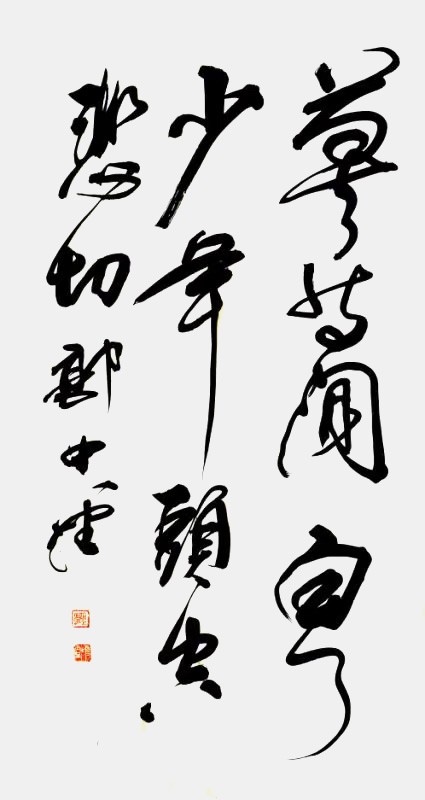 莫等閒白了
少年頭空
悲切 中